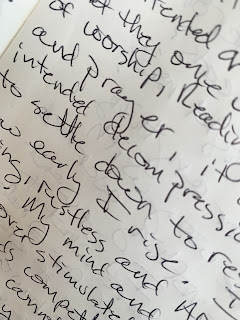 intended an
t they only u
of worship, readin
and prayer, it
intended decompressio
to settle down to re
w early I rise. An
ing, restless and
. My mind and
over stimulate
ds compet